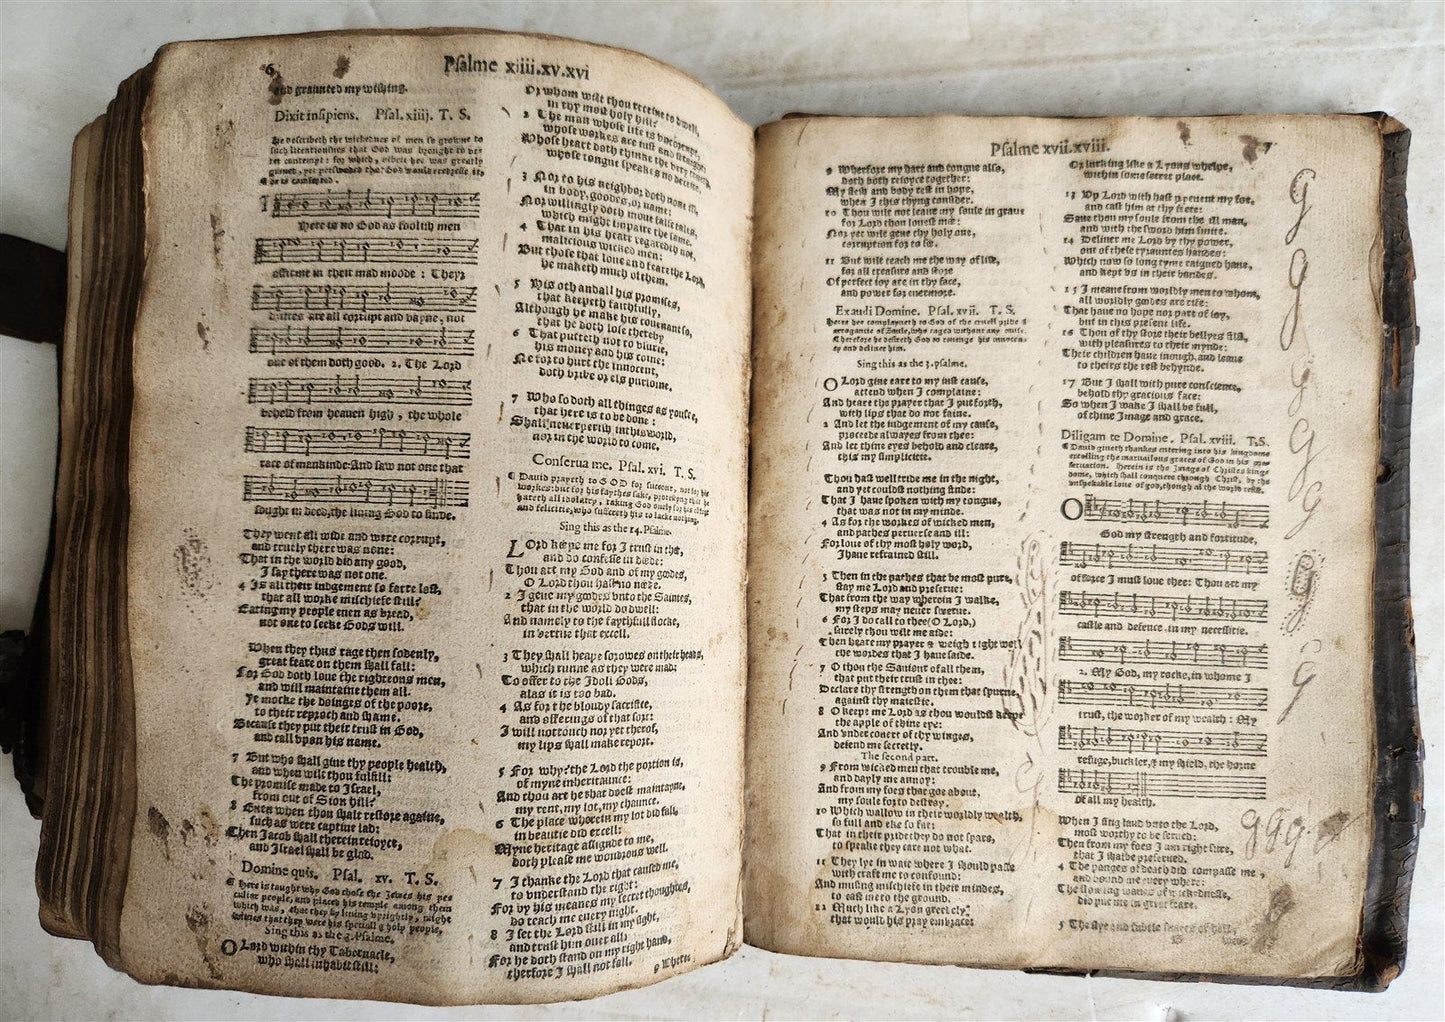 6
Psalme xiiii.xv.xvi
and graunted my wishing.
Dixit insipiens. Psal. xiiij. T. S.
He describeth the wickednes of men so growne to
such licentiousnes that God was brought to vt-
ter contempt: for which, albeit hee was greatly
grieued, yet perswaded that God would redresse it,
There is no God as foolish men
affirme in their mad moode: Theyr
driftes are all corrupt and vayne, not
one of them doth good. 2. The Lord
beheld from heauen high, the whole
race of mankinde: And saw not one that
sought in deed, the liuing God to finde.
They went all wide and were corrupt,
and truely there was none:
That in the world did any good,
I say there was not one.
4 Is all their iudgement so farre lost,
that all worke mischiefe still?
Eating my people euen as bread,
not one to seeke Gods will.
When they thus rage then sodenly,
great feare on them shall fall:
For God doth loue the righteous men,
and will maintaine them all.
Ye mocke the doings of the poore,
to their reproch and shame.
Because they put their trust in God,
and call vpon his name.
7 But who shall giue thy people health,
and when wilt thou fulfill:
The promise made to Israel,
from out of Sion hill?
8 Euen when thou shalt restore againe,
such as were captiue lad:
Then Jacob shall therein reioyce,
and Israel shall be glad.
Domine quis. Psal. xv. T. S.
¶ Here is taught why God chose the Jewes his pe-
culiar people, and placed his temple among them
which was, that they by liuing vprightly, might
witnes that they were his speciall & holy people,
Sing this as the 3. Psalme.
O Lord within thy Tabernacle,
who shall inhabit still:
Or whom wilt thou receiue to dwell,
in thy most holy hill?
2 The man whose life is vncorrupt,
whose workes are iust and straight:
Whose heart doth thinke the very trueth,
whose tongue speakes no deceite.
3 Nor to his neighbor doth none ill,
in body, goodes, or name:
Nor willingly doth moue false tales,
which might impaire the same.
4 That in his heart regardeth not,
malicious wicked men:
But those that loue and feare the Lord,
he maketh much of them.
5 His oth and all his promises,
that keepeth faithfully,
Although he make his couenant so,
that he doth lose thereby
6 That putteth not to vsurie,
his money and his coine:
Ne for to hurt the innocent,
doth bribe or els purloine.
7 Who so doth all thinges as you see,
that here is to be done:
Shall neuer perish in this world,
nor in the world to come.
Conserua me. Psal. xvi. T. S.
¶ Dauid prayeth to GOD for succour, not for his
workes: but for his faythes sake, protesting that he
hateth all idolatry, taking God onely for his comfort
and felicitie, who suffereth his to lacke nothing.
Sing this as the 14. Psalme.
LOrd keepe me for I trust in the,
and do confesse in deede:
Thou art my God and of my goodes,
O Lord thou hast no neede.
2 I geue my goodes vnto the Saintes,
that in the world do dwell:
And namely to the faythfull flocke,
in vertue that excell.
3 They shall heape sorowes on their heads,
which runne as they were mad:
To offer to the Idoll Gods,
alas it is too bad.
4 As for the bloudy sacrifice,
and offerings of that sort:
I will not touch nor yet therof,
my lips shall make report.
5 For why? the Lord the portion is,
of myne inheritaunce:
And thou art he that doest maintayne,
my rent, my lot, my chaunce.
6 The place wherein my lot did fall,
in beautie did excell:
Myne heritage assignde to me,
doth please me wondrous well.
7 I thanke the Lord that caused me,
to vnderstand the right:
For by his meanes my secret thoughtes,
do teach me euery night.
8 I set the Lord still in my sight,
and trust him ouer all:
For he doth stand on my right hand,
therfore I shall not fall.
9 Wherfore
Psalme xvii.xviii.
7
9 Wherfore my hart and tongue also,
doth both reioyce together:
My flesh and body rest in hope,
when I this thyng consider.
10 Thou wilt not leaue my soule in graue
for Lord thou louest me:
Nor yet wilt geue thy holy one,
corruption for to see.
11 But wilt teach me the way of life,
for all treasure and store
Of perfect ioy are in thy face,
and power for euermore.
Exaudi Domine. Psal. xvii. T. S.
Here he complayneth to God of the cruell pride &
arrogancie of Saule, who raged without any cause.
Therefore he desireth God to reuenge his innocen-
cy and deliuer him.
Sing this as the 3. psalme.
O Lord giue eare to my iust cause,
attend when I complaine:
And heare the prayer that I put forth,
with lips that do not faine.
2 And let the iudgement of my cause,
procede alwayes from thee:
And let thine eyes behold and cleare,
this my simplicitie.
Thou hast well tride me in the night,
and yet couldst nothing finde:
That I haue spoken with my tongue,
that was not in my minde.
4 As for the workes of wicked men,
and pathes peruerse and ill:
For loue of thy most holy word,
I haue refrained still.
5 Then in the pathes that be most pure,
stay me Lord and preserue:
That from the way wherein I walke,
my steps may neuer swerue.
6 For I do call to thee (O Lord,)
surely thou wilt me aide:
Then heare my prayer & weigh right well
the wordes that I haue saide.
7 O thou the Sauiour of all them,
that put their trust in thee:
Declare thy strength on them that spurne,
against thy maiestie.
8 O keepe me Lord as thou wouldst keepe
the apple of thine eye:
And vnder couert of thy winges,
defend me secretly.
The second part.
9 From wicked men that trouble me,
and dayly me annoy:
And from my foes that goe about,
my soule for to destroy.
10 Which wallow in their worldly wealth,
so full and eke so fat:
That in their pride they do not spare,
to speake they care not what.
11 They lye in waie where I should passe
with craft me to confound:
And musing mischiefe in their mindes,
to cast me to the ground.
12 Much like a Lyon greedely,
that would his pray embrace:
Or lurking like a Lyons whelpe,
within some secret place.
13 Up Lord with hast preuent my foe,
and cast him at thy feete:
Saue thou my soule from the ill man,
and with the sword him smite.
14 Deliuer me Lord by thy power,
out of these tyrauntes handes:
Which now so long tyme raigned haue,
and kept vs in their bandes.
15 I meane from worldly men to whom,
all worldly goodes are rife:
That haue no hope nor part of ioy,
but in this present life.
16 Thou of thy store their bellyes fills,
with pleasures to their mynde:
Their children haue inough, and leaue
to theirs the rest behynde.
17 But I shall with pure conscience,
behold thy gracious face:
So when I wake I shall be full,
of thine Image and grace.
Diligam te Domine. Psal. xviii. T. S.
¶ Dauid giueth thankes entering into his kingdome
extolling the maruailous graces of God in his pre-
seruation. herein is the Image of Christes king-
dome, which shall conquere through Christ, by the
vnspekable loue of god, though al the world resist.
O
God my strength and fortitude,
of force I must loue thee: Thou art my
castle and defence in my necessitie.
2. My God, my rocke, in whome I
trust, the worker of my wealth: My
refuge, buckler, & my shield, the horne
of all my health.
When I sing laud vnto the Lord,
most worthy to be serued:
Then from my foes I am right sure,
that I shalbe preserued.
4 The panges of death did compasse me,
and bound me euery where:
The flowing waues of wickednesse,
did put me in great feare.
5 The slye and subtle snares of hell,
g
g
g
g
g
g
g
g g g